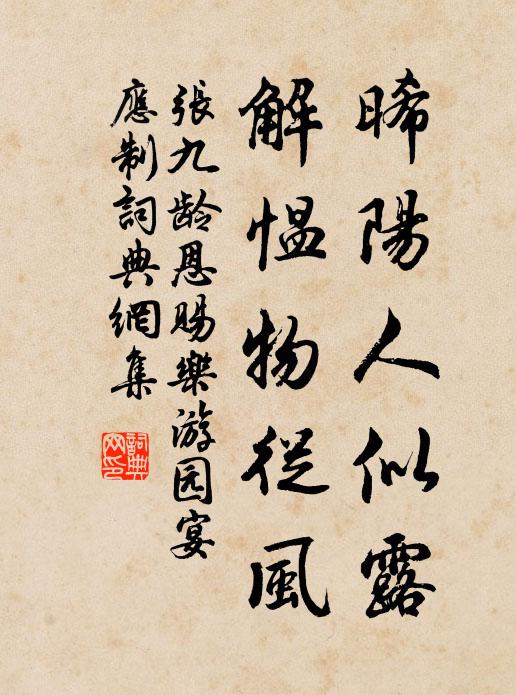 晞陽人似露
解愠物從風
張九龄恩賜樂游园宴
應制詞典網集
詞典
网印